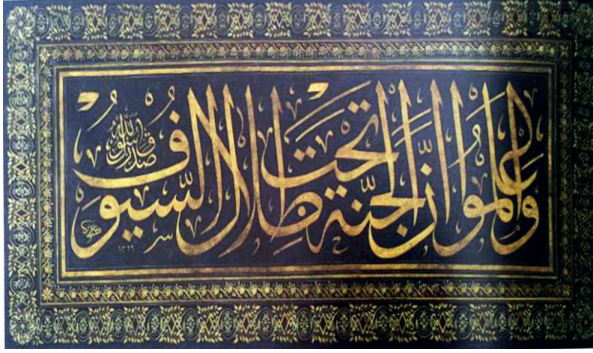 واعلموا انّ الجنّة تحت ظلال السّيوف
صدق رسول الله
١٣٢٩